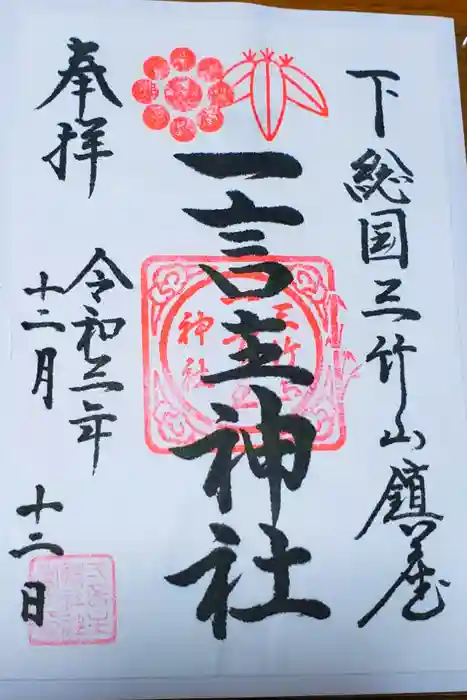 下総国三竹山鎮座
一言主神社
奉拝
令和三年
十二月
十二日